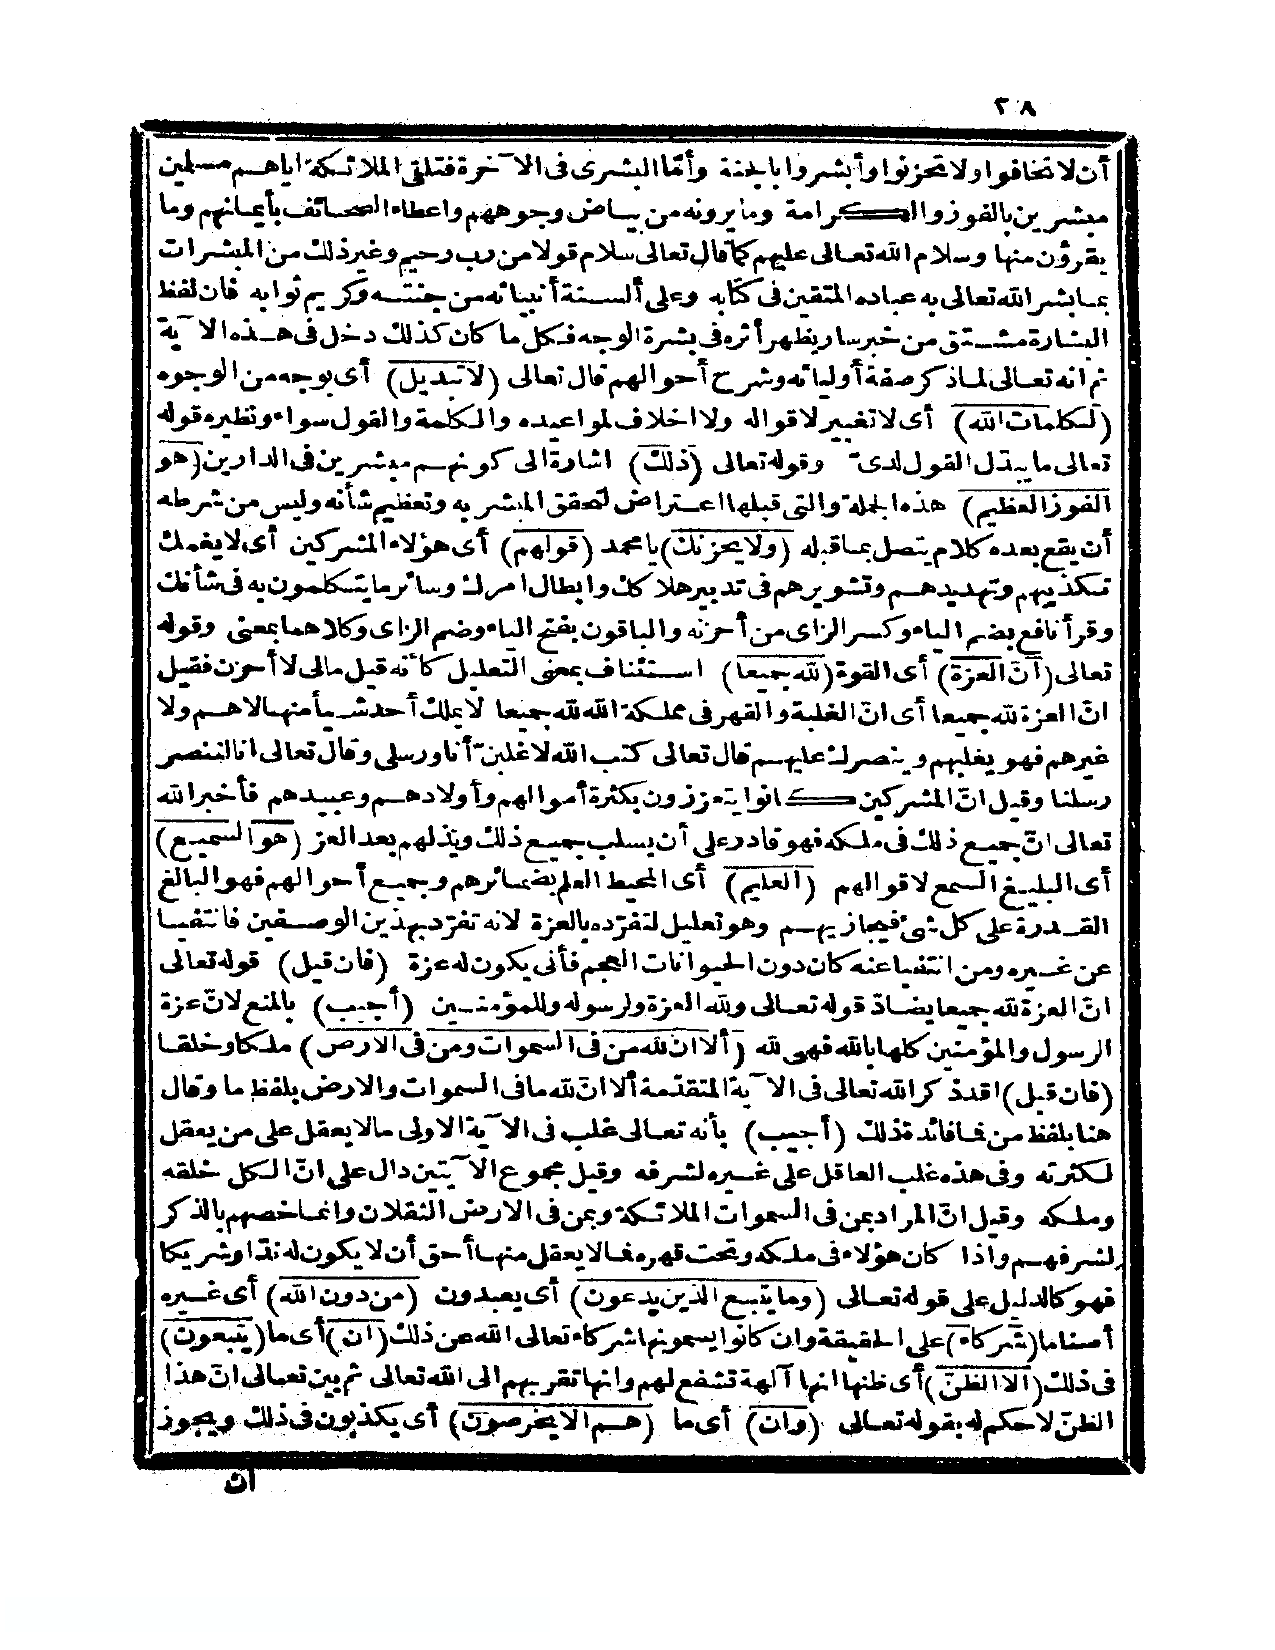 ٢٨
أن لا تخافوا ولا تحزنوا وأبشروا بالجنة وأمّا البشرى فى الآخرة فتلقى الملائكة اياهم مسلمين
مبشرين بالفوز والكرامة وما يرونه من بياض وجوههم واعطاء الصحائف بأيمانهم وما
يقرؤن منها وسلام الله تعالى عليهم كما قال تعالى سلام قولا من رب رحيم وغير ذلك من المبشرات
بما بشر الله تعالى به عباده المتقين فى كتابه وعلى ألسنة أنبيائه من جنته وكريم ثوابه فان لفظ
البشارة مشتق من خبر سار يظهر أثره فى بشرة الوجه فكل ما كان كذلك دخل فى هذه الآية
ثم انه تعالى لما ذكر صفة أوليائه وشرح أحوالهم قال تعالى (لا تبديل) أى بوجه من الوجوه
(لكلمات الله) أى لا تغيير لاقواله ولا اخلاف لمواعيده والكلمة والقول سواء ونظيره قوله
تعالى ما يبدّل القول لدىّ وقوله تعالى (ذلك) اشارة الى كونهم مبشرين فى الدارين (هو
الفوز العظيم) هذه الجملة والتى قبلها اعتراض لتحقق المبشر به وتعظيم شأنه وليس من شرطه
أن يقع بعده كلام يتصل بما قبله (ولا يحزنك) يا محمد (قولهم) أى هؤلاء المشركين أى لا يغمك
تكذيبهم وتهديدهم وتشويرهم فى تدبير هلاكك وابطال امرك وسائر ما يتكلمون به فى شأنك
وقرأ نافع بضم الياء وكسر الزاى من أحزنه والباقون بفتح الياء وضم الزاى وكلاهما بمعنى وقوله
تعالى (أنّ العزة) أى القوة (لله جميعا) استئناف بمعنى التعليل كأنه قيل مالى لا أحزن فقيل
انّ العزة لله جميعا أى انّ الغلبة والقهر فى مملكة الله لله جميعا لا يملك أحد شيأ منها لا هم ولا
غيرهم فهو يغلبهم وينصرك عليهم قال تعالى كتب الله لاغلبنّ أنا ورسلى وقال تعالى انا لننصر
رسلنا وقيل انّ المشركين كانوا يتعززون بكثرة أموالهم وأولادهم وعبيدهم فأخبر الله
تعالى انّ جميع ذلك فى ملكه فهو قادر على أن يسلب جميع ذلك ويذلهم بعد العز (هو السميع)
أى البليغ السمع لاقوالهم (العليم) أى المحيط العلم بضمائرهم وجميع أحوالهم فهو البالغ
القدرة على كل شئ فيجازيهم وهو تعليل لتفرّده بالعزة لانه تفرّد بهذين الوصفين فانتفيا
عن غيره ومن انتفيا عنه كان دون الحيوانات العجم فأنى يكون له عزة (فان قيل) قوله تعالى
انّ العزة لله جميعا يضادّ قوله تعالى ولله العزة ولرسوله وللمؤمنين (أجيب) بالمنع لانّ عزة
الرسول والمؤمنين كلها بالله فهى لله (ألا انّ لله من فى السموات ومن فى الارض) ملكا وخلقا
(فان قيل) اقد ذكر الله تعالى فى الآية المتقدّمة ألا انّ لله ما فى السموات والارض بلفظ ما وقال
هنا بلفظ من فما فائدة ذلك (أجيب) بأنه تعالى غلب فى الآية الاولى ما لا يعقل على من يعقل
لكثرته وفى هذه غلب العاقل على غيره لشرفه وقيل مجموع الآيتين دال على انّ الكل خلقه
وملكه وقيل انّ المراد بمن فى السموات الملائكة وبمن فى الارض الثقلان وانما خصهم بالذكر
لشرفهم واذا كان هؤلاء فى ملكه وتحت قهره فما لا يعقل منها أحق أن لا يكون له ندّا وشريكا
فهو كالدليل على قوله تعالى (وما يتبع الذين يدعون) أى يعبدون (من دون الله) أى غيره
أصناما (شركاء) على الحقيقة وان كانوا يسمونها شركاء تعالى الله عن ذلك (ان) أى ما (يتبعون)
فى ذلك (الا الظنّ) أى ظنها انها آلهة تشفع لهم وانها تقربهم الى الله تعالى ثم بين تعالى انّ هذا
الظنّ لا حكم له بقوله تعالى (وان) أى ما (هم الا يخرصون) أى يكذبون فى ذلك ويجوز
ان